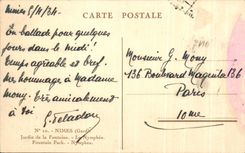 CARTE POSTALE
Nimes 5/11/34.
En ballade pour quelques
jours dans le midi!
Temps agréable et bref.
Mes hommages à Madame
Mony. Très amicalement
à toi
G. Peladan
Monsieur G. Mony
136 Boulevard Magenta 136
Paris
10me
N° 10. - NIMES (Gard)
Jardin de la Fontaine. - Le Nymphée.
Fountain Park. - Nymphea.